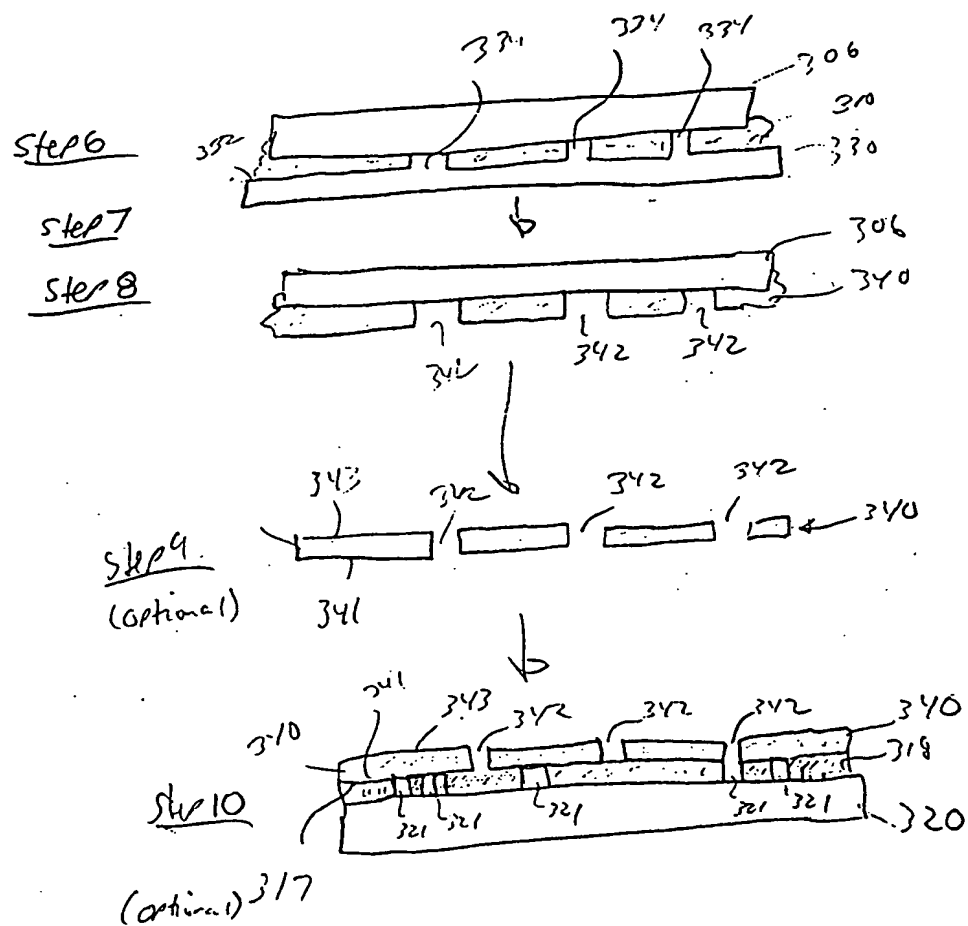 334 334
306
Step 6
310
332
330
Step 7
306
Step 8
340
342 342 342
343 342 342 342
340
Step 9
(optional)
341
341 343 342 342 342 340
340
318
Step 10
321 321 321 321 321
320
(optional) 317